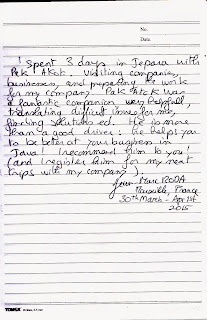 No.
Date.
I spent 3 days in Jepara with
Pak Atok. Visiting companies,
businesses, and preparing the work
for my company. Pak Atok was
a fantastic companion very helpfull,
translating difficult issues for me,
finding solutions ect. He is more
than a good driver: he helps you
to be better at your business in
Java! I recommend him to you!
(and I register him for my next
trips with my company).
Jean-Marc RODA
Marseille, France
30th March - Apr 1st
2015